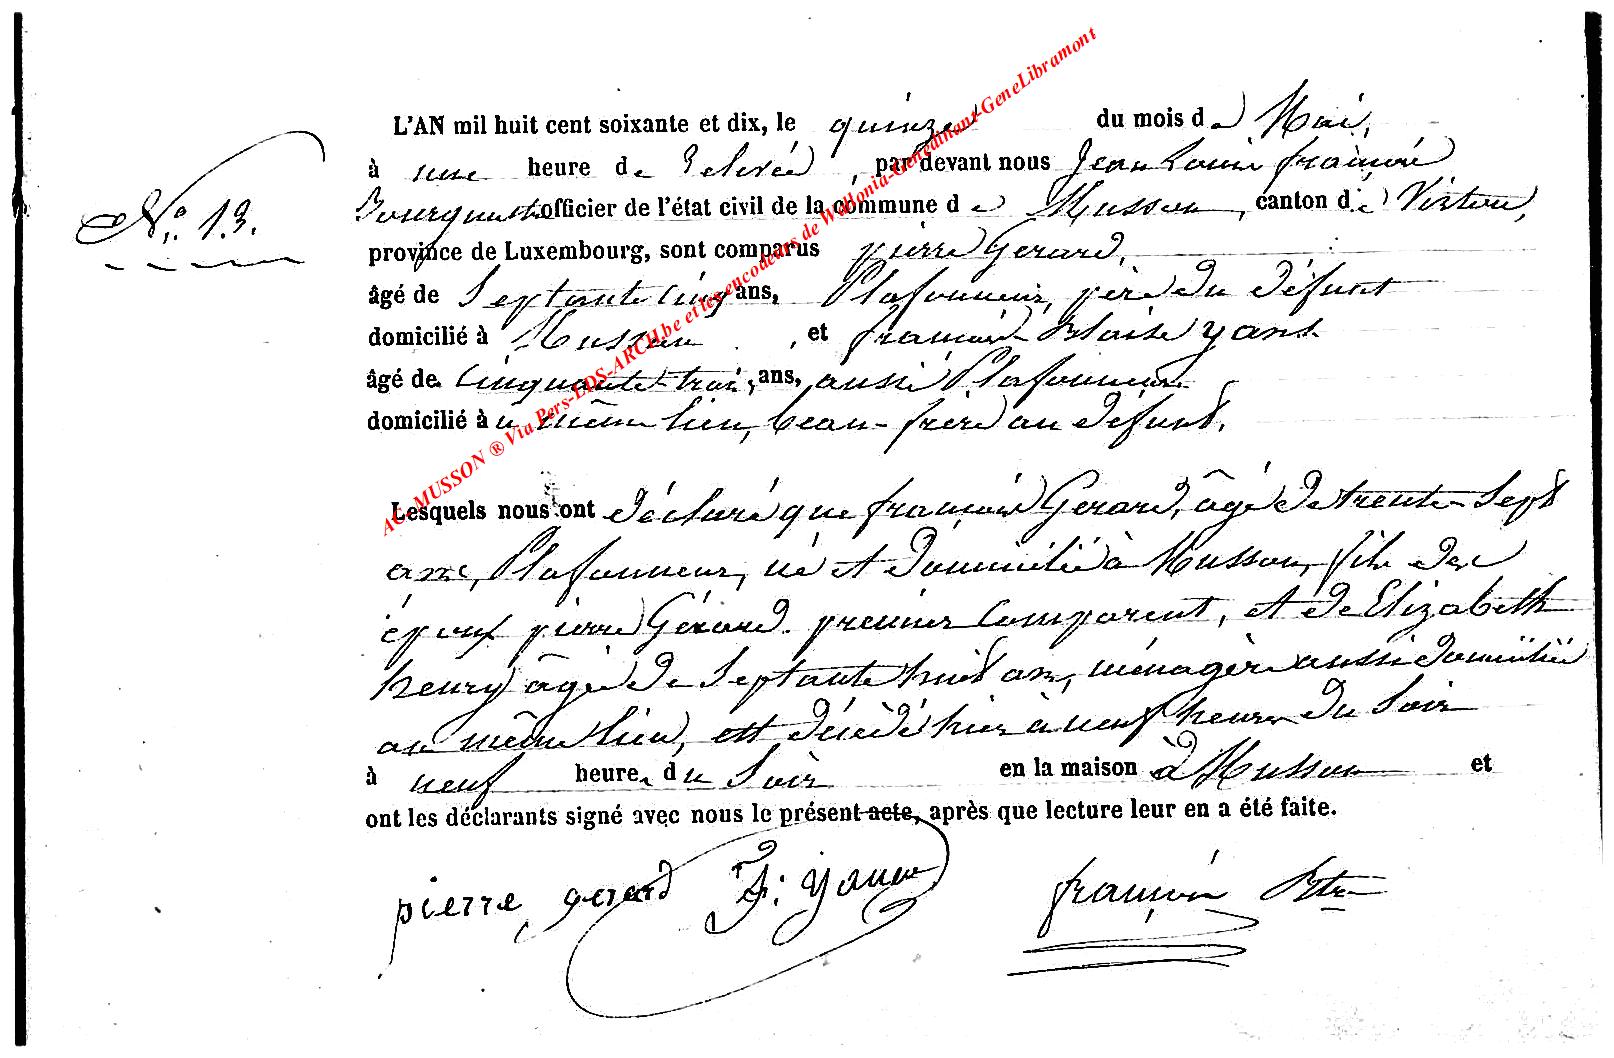 N° 13.
L'AN mil huit cent soixante et dix, le quinze du mois de Mai,
à une heure de relevée, par devant nous Jean Louis françois
Bourguest officier de l'état civil de la commune de Musson, canton de Virton,
province de Luxembourg, sont comparus pierre Gerard,
âgé de Septante cinq ans, Plafonneur, père du défunt
domicilié à Musson, et françois Blaise yans
âgé de Cinquante-trois, ans, aussi Plafonneur
domicilié au même lieu, beau-frère au défunt.
Lesquels nous ont déclaré que françois Gerard, âgé de trente-Sept
ans, Plafonneur, né et domicilié à Musson, fils des
époux pierre Gérard premier Comparent, et de Elizabeth
henry âgée de Septante huit ans, ménagère aussi domiciliée
au même lieu, est décédé hier à neuf heures du Soir
à neuf heures du Soir en la maison à Musson et
ont les déclarants signé avec nous le présent acte, après que lecture leur en a été faite.
pierre gerard F: yans françois Btre
AC-MUSSON ® Via Pers-LDS-ARCH.be et les encodeurs de Wallonia-Genedinant-GeneLibramont